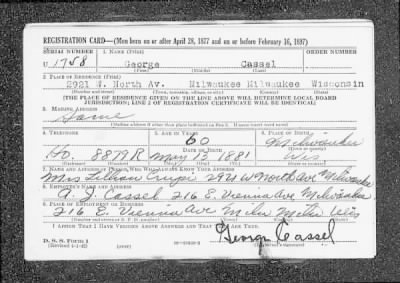 REGISTRATION CARD—(Men born on or after April 28, 1877 and on or before February 16, 1897)
SERIAL NUMBER 1. NAME (Print) ORDER NUMBER
U 1758 George Cassel
(First) (Middle) (Last)
2. PLACE OF RESIDENCE (Print)
2921 W. North Av. Milwaukee Milwaukee Wisconsin
(Number and street) (Town, township, village, or city) (County) (State)
[THE PLACE OF RESIDENCE GIVEN ON THE LINE ABOVE WILL DETERMINE LOCAL BOARD
JURISDICTION; LINE 2 OF REGISTRATION CERTIFICATE WILL BE IDENTICAL]
3. MAILING ADDRESS
Same
4. TELEPHONE 5. AGE IN YEARS 6. PLACE OF BIRTH
60 Milwaukee
DATE OF BIRTH
Ho. 8879R May 13 1881 Wis
7. NAME AND ADDRESS OF PERSON WHO WILL ALWAYS KNOW YOUR ADDRESS
Mrs Lillian 2921 W North Ave Milwaukee
8. EMPLOYER'S NAME AND ADDRESS
A. J. Cassel 216 E. Vienna Ave Milwaukee
9. PLACE OF EMPLOYMENT OR BUSINESS
216 E. Vienna Ave Milw Milw Wis
I AFFIRM THAT I HAVE VERIFIED ABOVE ANSWERS AND THAT THEY ARE TRUE.
D. S. S. Form 1
(Revised 4-1-42)
George Cassel